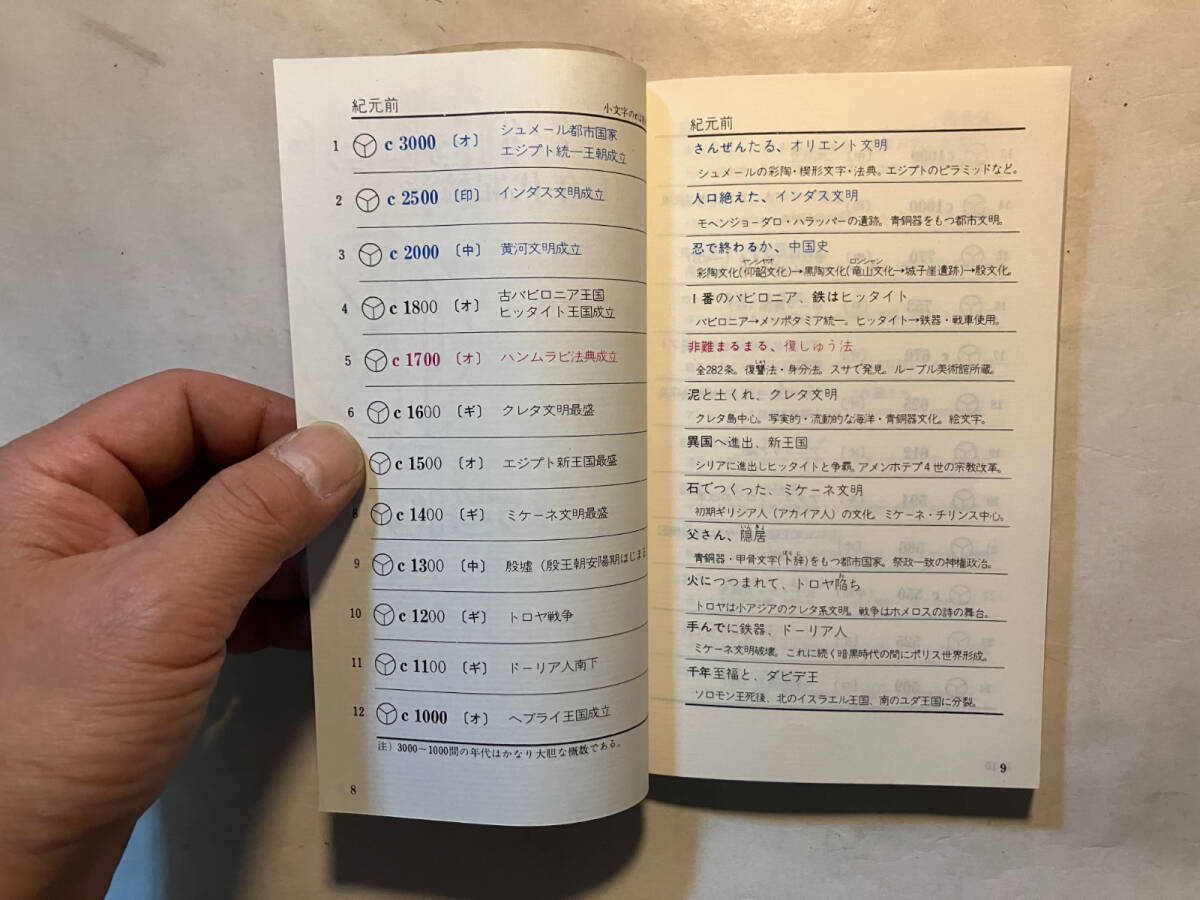 紀元前
小文字のcは
1 c 3000 〔オ〕 シュメール都市国家
エジプト統一王朝成立
2 c 2500 〔印〕 インダス文明成立
3 c 2000 〔中〕 黄河文明成立
4 c 1800 〔オ〕 古バビロニア王国
ヒッタイト王国成立
5 c 1700 〔オ〕 ハンムラビ法典成立
6 c 1600 〔ギ〕 クレタ文明最盛
c 1500 〔オ〕 エジプト新王国最盛
8 c 1400 〔ギ〕 ミケーネ文明最盛
9 c 1300 〔中〕 殷墟(殷王朝安陽期はじまる
10 c 1200 〔ギ〕 トロヤ戦争
11 c 1100 〔ギ〕 ドーリア人南下
12 c 1000 〔オ〕 ヘブライ王国成立
注) 3000〜1000間の年代はかなり大胆な概数である。
8
紀元前
さんぜんたる、オリエント文明
シュメールの彩陶・楔形文字・法典。エジプトのピラミッドなど。
人口絶えた、インダス文明
モヘンジョ-ダロ・ハラッパーの遺跡。青銅器をもつ都市文明。
忍で終わるか、中国史
ヤンシヤオ ロンシャン
彩陶文化(仰韶文化)→黒陶文化(竜山文化→城子崖遺跡)→殷文化。
1番のバビロニア、鉄はヒッタイト
バビロニア→メソポタミア統一。ヒッタイト→鉄器・戦車使用。
非難まるまる、復しゅう法
しゅう
全282条。復讐法・身分法。スサで発見。ルーブル美術館所蔵。
泥と土くれ、クレタ文明
クレタ島中心。写実的・流動的な海洋・青銅器文化。絵文字。
異国へ進出、新王国
シリアに進出しヒッタイトと争覇。アメンホテプ4世の宗教改革。
石でつくった、ミケーネ文明
初期ギリシア人(アカイア人)の文化。ミケーネ・チリンス中心。
いんきょ
父さん、隠居
ぼくじ
青銅器・甲骨文字(卜辞)をもつ都市国家。祭政一致の神権政治。
お
火につつまれて、トロヤ陥ち
トロヤは小アジアのクレタ系文明。戦争はホメロスの詩の舞台。
手んでに鉄器、ドーリア人
ミケーネ文明破壊。これに続く暗黒時代の間にポリス世界形成。
千年至福と、ダビデ王
ソロモン王死後、北のイスラエル王国、南のユダ王国に分裂。
9